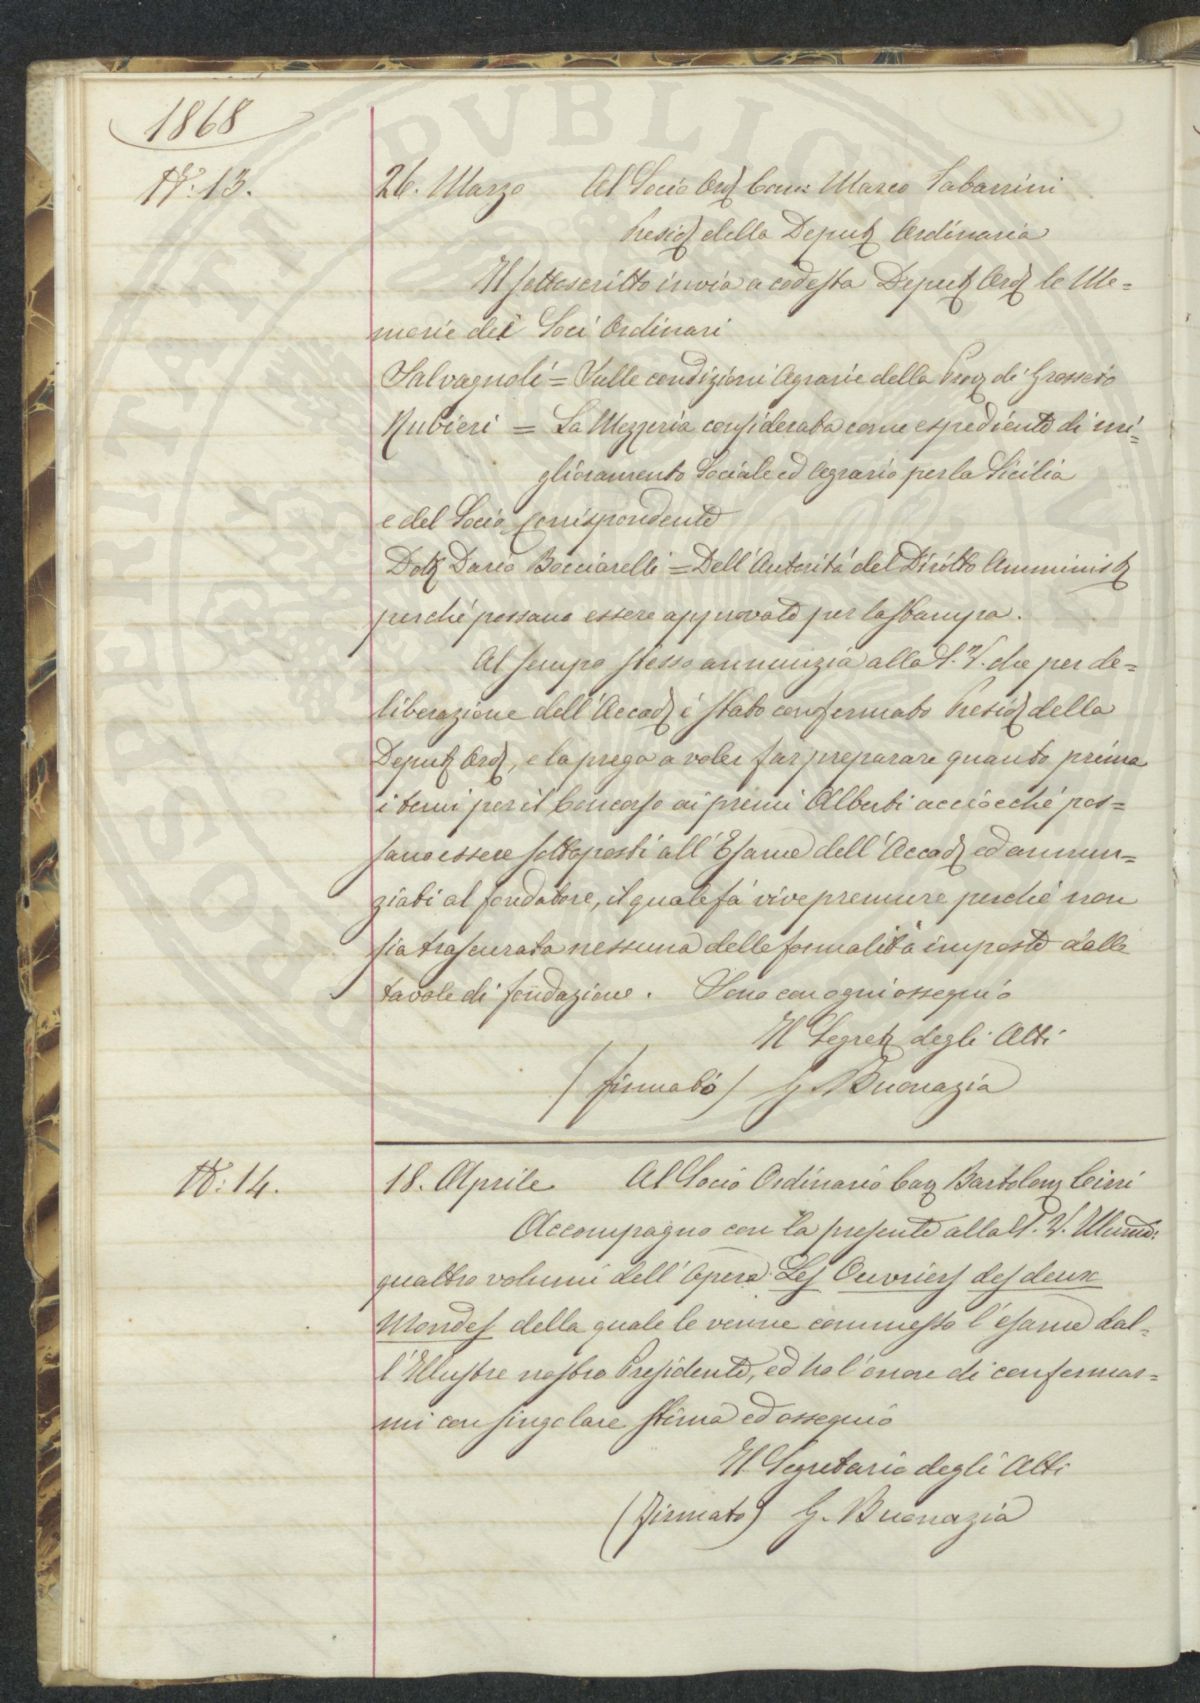 1868
N.° 13.
26. Marzo Al Socio Ord. Com. Marco Tabarrini
Presid. della Deput. Ordinaria
Il sottoscritto invia a codesta Deput. Ord. le Me=
morie dei Soci Ordinari
Salvagnoli = Sulle condizioni Agrarie della Prov. di Grosseto
Rubieri = La Mezzeria considerata come espediente di mi=
glioramento Sociale ed Agrario per la Sicilia
e del Socio Corrispondente
Dott. Dario Bocciarelli = Dell'Autorità del Diritto Amminist.
perché possano essere approvate per la stampa.
Al tempo stesso annunzia alla S. V. che per de=
liberazione dell'Accad. è stato confermato Presid. della
Deput. Ord., e la prega a voler far preparare quanto prima
i temi per il Concorso ai premi Alberti acciocché pos=
sano essere sottoposti all'Esame dell'Accad. ed annun=
ziati al fondatore, il quale fa vive premure perché non
sia trascurata nessuna delle formalità imposte dalle
tavole di fondazione. Sono con ogni ossequio
Il Segret. degli Atti
(firmato) G. Buonazia
N.° 14.
18. Aprile Al Socio Ordinario Cav. Bartolom. Cini
Accompagno con la presente alla S. V. Illma:
quattro volumi dell'Opera: Les Ouvriers des deux
Mondes della quale le venne commesso l'esame dal=
l'Illustre nostro Presidente, ed ho l'onore di confermar=
mi con singolare stima ed ossequio
Il Segretario degli Atti
(firmato) G. Buonazia